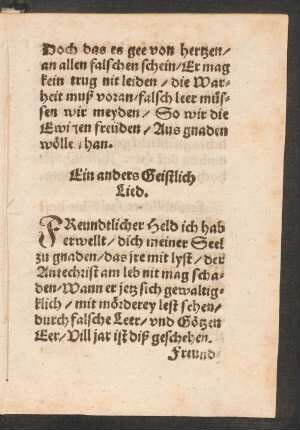 Doch das es gee von hertzen/
an allen falschen schein/Er mag
kein trug nit leiden/die War-
heit muß voran/falsch leer müs-
sen wir meyden/So wir die
Ewigen freüden/Aus gnaden
wölle han.
Ein anders Geistlich
Lied.
FReundtlicher Held ich hab
erwellt/dich meiner Seel
zu gnaden/das jre mit lyst/der
Antechrist am leb nit mag scha-
den/Wann er jetz sich gewaltig-
klich/mit mörderey lest sehen/
durch falsche Leer/vnd Götzen
Eer/Vill jar ist diß geschehen.
Freund-